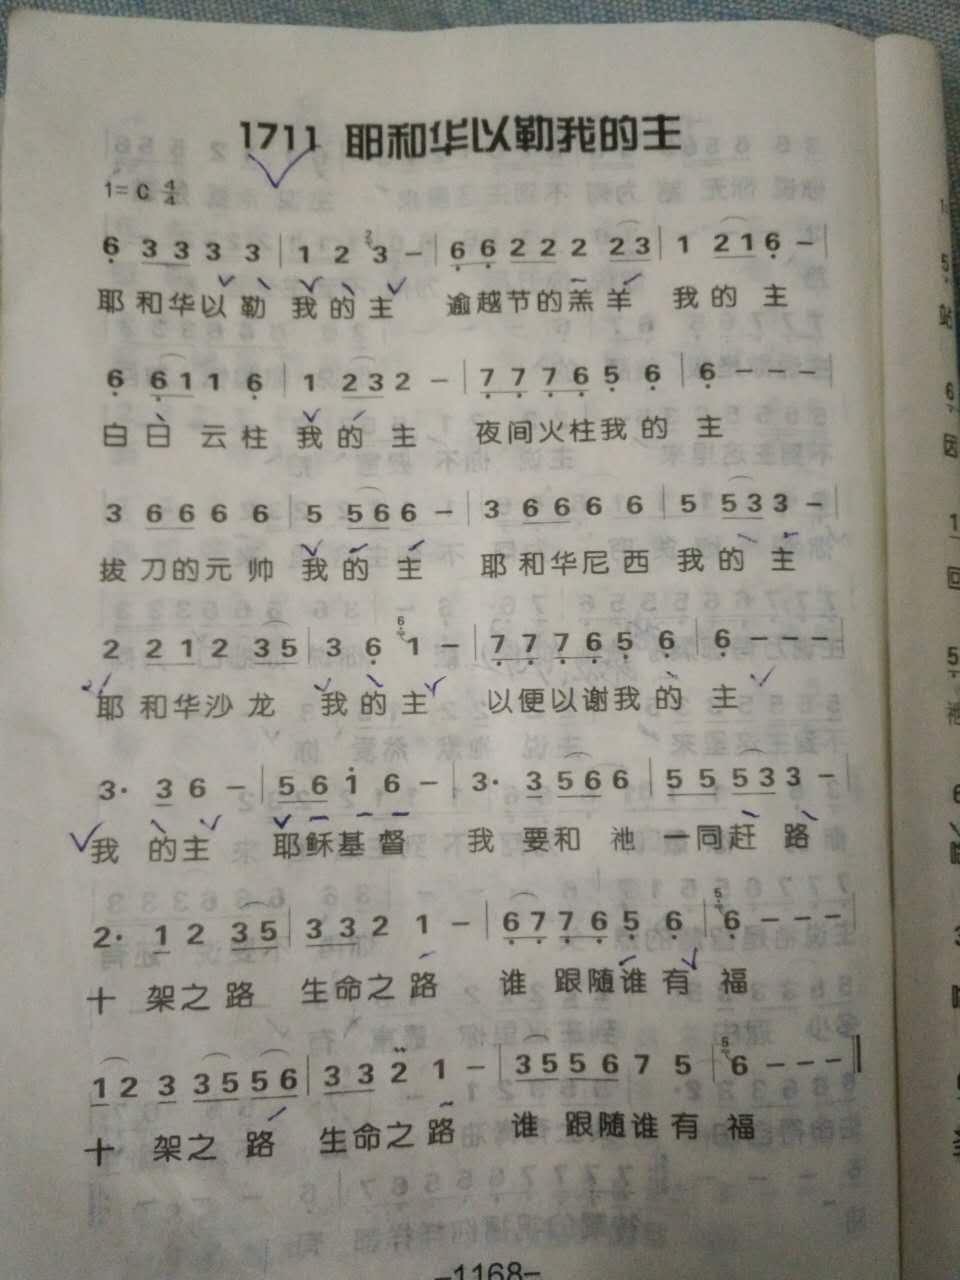 1711 耶和华以勒我的主
1= C 4/4
6 3 3 3 3 | 1 2 3 – | 6 6 2 2 2 2 3 | 1 2 1 6 – |
耶和华以勒 我的主 逾越节的羔羊 我的主
6 6 1 1 6 | 1 2 3 2 – | 7 7 7 6 5 6 | 6 – – – |
白日云柱 我的主 夜间火柱我的主
3 6 6 6 6 | 5 5 6 6 – | 3 6 6 6 6 | 5 5 3 3 – |
拔刀的元帅 我的主 耶和华尼西 我的主
2 2 1 2 3 5 | 3 6 1 – | 7 7 7 6 5 6 | 6 – – – |
耶和华沙龙 我的主 以便以谢我的主
3· 3 6 – | 5 6 1 6 – | 3· 3 5 6 6 | 5 5 5 3 3 – |
我的主 耶稣基督 我要和祂一同赶路
2· 1 2 3 5 | 3 3 2 1 – | 6 7 7 6 5 6 | 6 – – – |
十架之路 生命之路 谁跟随谁有福
1 2 3 3 5 5 6 | 3 3 2 1 – | 3 5 5 6 7 5 | 6 – – – ‖
十架之路 生命之路 谁跟随谁有福
–1168–